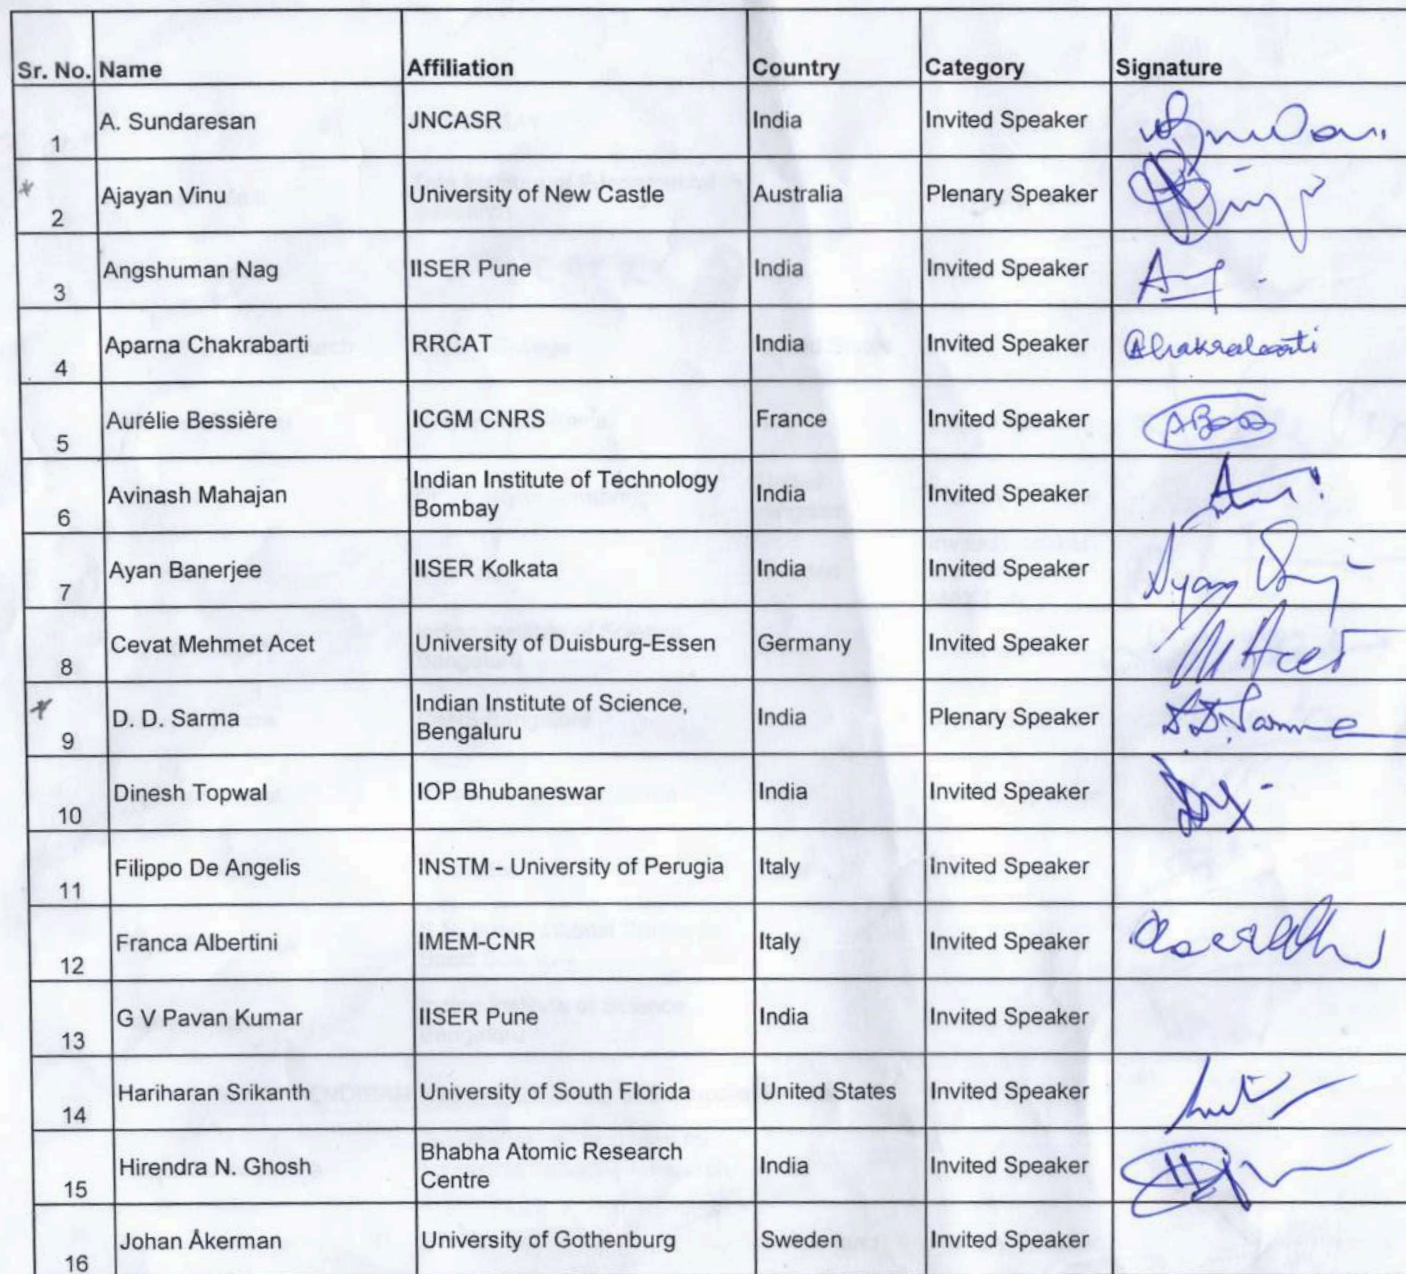 Sr. No. Name Affiliation Country Category Signature
1 A. Sundaresan JNCASR India Invited Speaker
* 2 Ajayan Vinu University of New Castle Australia Plenary Speaker
3 Angshuman Nag IISER Pune India Invited Speaker
4 Aparna Chakrabarti RRCAT India Invited Speaker AChakrabarti
5 Aurélie Bessière ICGM CNRS France Invited Speaker
6 Avinash Mahajan Indian Institute of Technology
Bombay India Invited Speaker
7 Ayan Banerjee IISER Kolkata India Invited Speaker
8 Cevat Mehmet Acet University of Duisburg-Essen Germany Invited Speaker M Acet
* 9 D. D. Sarma Indian Institute of Science,
Bengaluru India Plenary Speaker D.D. Sarma
10 Dinesh Topwal IOP Bhubaneswar India Invited Speaker
11 Filippo De Angelis INSTM - University of Perugia Italy Invited Speaker
12 Franca Albertini IMEM-CNR Italy Invited Speaker
13 G V Pavan Kumar IISER Pune India Invited Speaker
14 Hariharan Srikanth University of South Florida United States Invited Speaker
15 Hirendra N. Ghosh Bhabha Atomic Research
Centre India Invited Speaker
16 Johan Åkerman University of Gothenburg Sweden Invited Speaker